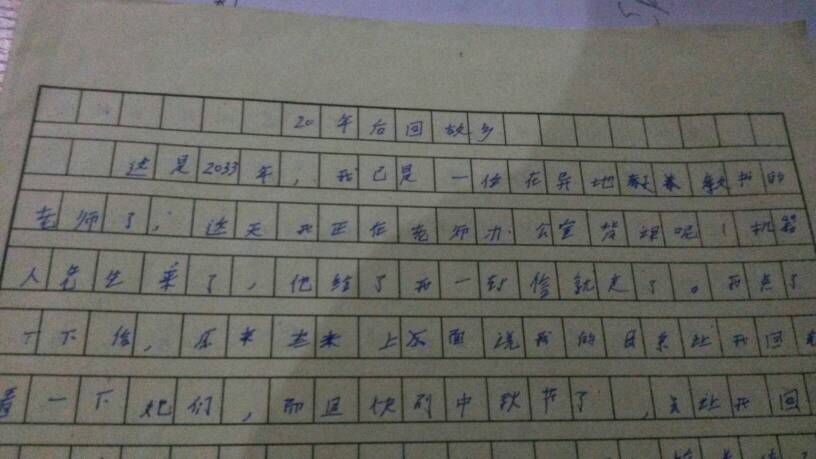 20年后回故乡
这是2033年,我已是一位在异地教书的
老师了,这天我正在老师办公室背课呢!机器
人先生来了,他给了我一封信就走了。我点了
一下信,原来上面说我的目亲让我回
看一下她们,而且快到中秋节了,去让我回